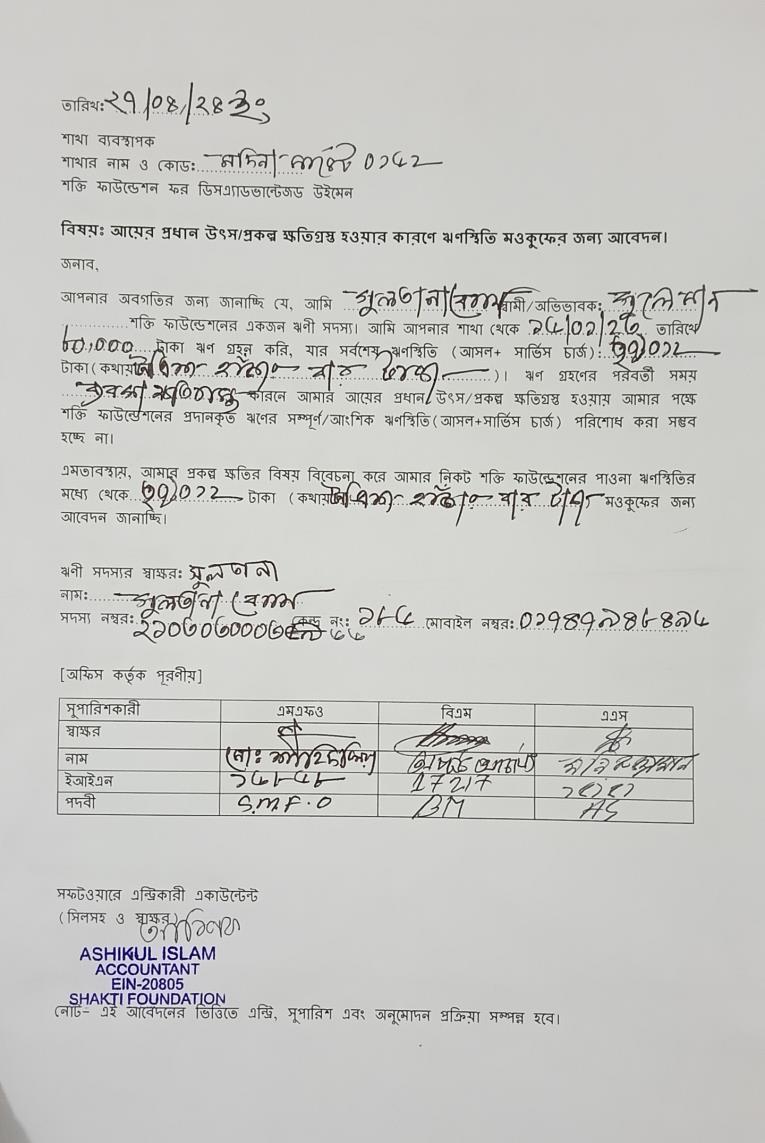 তারিখ: ২৭/০৪/২৪ ইং
শাখা ব্যবস্থাপক
শাখার নাম ও কোড: মদিনা ০১৫২
শক্তি ফাউন্ডেশন ফর ডিসএ্যাডভান্টেজড উইমেন
বিষয়: আয়ের প্রধান উৎস/প্রকল্প ক্ষতিগ্রস্থ হওয়ার কারণে ঋণস্থিতি মওকুফের জন্য আবেদন।
জনাব,
আপনার অবগতির জন্য জানাচ্ছি যে, আমি সুলতানা বেগম স্বামী/অভিভাবক:
শক্তি ফাউন্ডেশনের একজন ঋনী সদস্য। আমি আপনার শাখা থেকে তারিখে
৮০,০০০ টাকা ঋণ গ্রহন করি, যার সর্বশেষ ঋণস্থিতি (আসল+ সার্ভিস চার্জ):
টাকা (কথায় হাজার বার টাকা)। ঋণ গ্রহণের পরবর্তী সময়
ব্যবসা ক্ষতিগ্রস্ত কারনে আমার আয়ের প্রধান উৎস/প্রকল্প ক্ষতিগ্রস্ত হওয়ায় আমার পক্ষে
শক্তি ফাউন্ডেশনের প্রদানকৃত ঋণের সম্পূর্ণ/আংশিক ঋণস্থিতি(আসল+সার্ভিস চার্জ) পরিশোধ করা সম্ভব
হচ্ছে না।
এমতাবস্থায়, আমার প্রকল্প ক্ষতির বিষয় বিবেচনা করে আমার নিকট শক্তি ফাউন্ডেশনের পাওনা ঋণস্থিতির
মধ্যে থেকে টাকা (কথায় হাজার বার টাকা মওকুফের জন্য
আবেদন জানাচ্ছি।
ঋনী সদস্যর স্বাক্ষর: সুলতানা
নাম: সুলতানা বেগম
সদস্য নম্বর: কেন্দ্র নং: মোবাইল নম্বর:
[অফিস কর্তৃক পূরণীয়]
সুপারিশকারী এমএফও বিএম এএস
স্বাক্ষর
নাম মো:
ইআইএন 17217
পদবী S.M.F.O BM AS
সফটওয়ারে এন্ট্রিকারী একাউন্টেন্ট
(সিলসহ ও স্বাক্ষর)
ASHIKUL ISLAM
ACCOUNTANT
EIN-20805
SHAKTI FOUNDATION
নোট- এই আবেদনের ভিত্তিতে এন্ট্রি, সুপারিশ এবং অনুমোদন প্রক্রিয়া সম্পন্ন হবে।